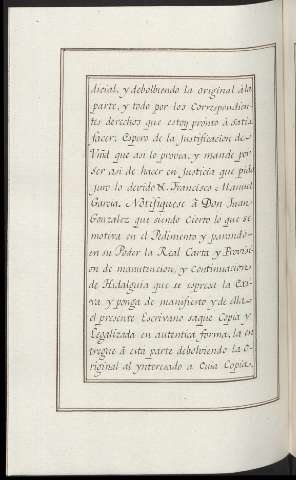 dicial, y debolbiendo la original a la
parte, y todo por los Correspondien-
tes derechos que estoy pronto à Satis
facer; Espero de la Justificacion de-
Vmd que asi lo provea, y mande por
ser asi de hacer en Justicia que pido
juro lo devido &. Francisco Manuel
Garcia. Notifiquese à Don Juan
Gonzalez que siendo Cierto lo que se
motiva en el Pedimento y parando
en su Poder la Real Carta y Provisi
on de manutencion, y Continuacion
de Hidalguia que se espresa la Exi
va, y ponga de manifiesto y de ella
el presente Escrivano saque Copia y
Legalizada en autentica forma, la en
tregue à esta parte debolviendo la O-
riginal al ynteresado a Cuia Copia,